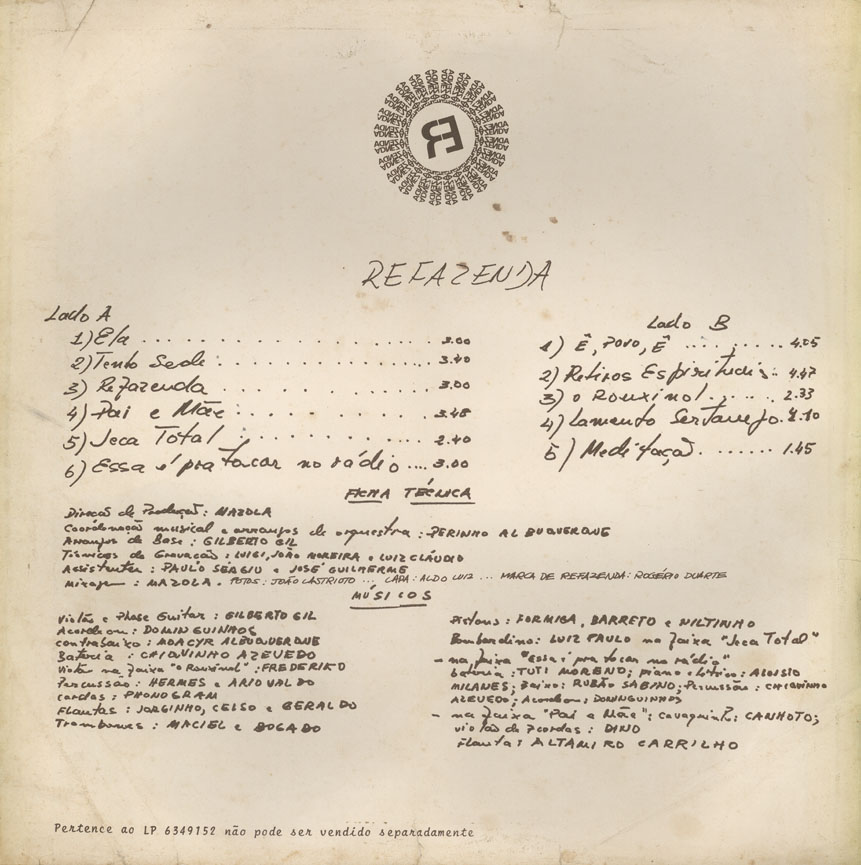 REFAZENDA
Lado A
1) Ela . . . . . . 3.00
2) Tenho Sede . . . . . . 3.40
3) Refazenda . . . . . . 3.00
4) Pai e Mãe . . . . . . 3.48
5) Jeca Total . . . . . . 2.40
6) Essa é pra tocar no rádio .... 3.00
Lado B
1) Ê, Povo, Ê . . . . . . 4.05
2) Retiros Espirituais .. 4.47
3) o Rouxinol . . . . . 2.33
4) Lamento Sertanejo . 4.10
5) Meditação ....... 1.45
FICHA TÉCNICA
Direção de Produção: MAZOLA
Coordenação musical e arranjos de orquestra : PERINHO ALBUQUERQUE
Arranjos de Base : GILBERTO GIL
Técnicos de Gravação : LUIGI, JOÃO MOREIRA e LUIZ CLÁUDIO
Assistentes : PAULO SÉRGIO e JOSÉ GUILHERME
Mixagem : MAZOLA . FOTOS : JOÃO CASTRIOTO ... CAPA : ALDO LUIZ ... MARCA DE REFAZENDA : ROGÉRIO DUARTE
MÚSICOS
Violão e Phase Guitar : GILBERTO GIL
Acordeon : DOMINGUINHOS
contrabaixo : MOACYR ALBUQUERQUE
Bateria : CHIQUINHO AZEVEDO
Violão na faixa "o Rouxinol" : FREDERIKO
Percussão : HERMES e ARIOVALDO
cordas : PHONOGRAM
Flautas : JORGINHO, CELSO e GERALDO
Trombones : MACIEL e BOGADO
Pistons : FORMIGA, BARRETO e NILTINHO
Bombardino : LUIZ PAULO na faixa "Jeca Total"
- na faixa "Essa é pra tocar no rádio"
bateria : TUTI MORENO; piano elétrico : ALOISIO
MILANES; Baixo : RUBÃO SABINO; Percussão : CHIQUINHO
AZEVEDO; Acordeon : DOMINGUINHOS
- na faixa "Pai e Mãe" : Cavaquinho : CANHOTO;
violão de 7 cordas : DINO
Flauta : ALTAMIRO CARRILHO
Pertence ao LP 6349152 não pode ser vendido separadamente